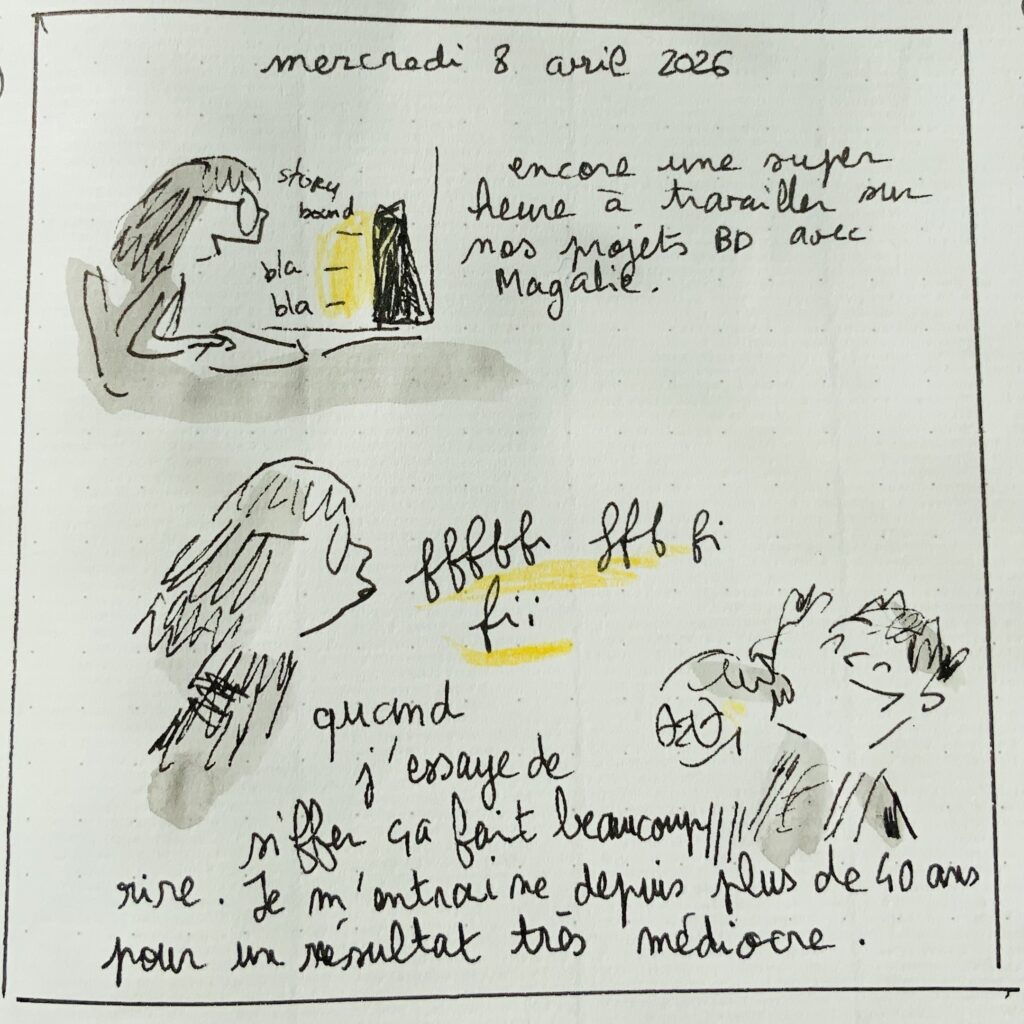 mercredi 8 avril 2026
story
board
bla
bla
encore une super
heure à travailler sur
nos projets BD avec
Magalie.
ffffffi fff fi
fii
quand
j'essaye de
siffer ça fait beaucoup
rire. Je m'entraine depuis plus de 40 ans
pour un résultat très médiocre.